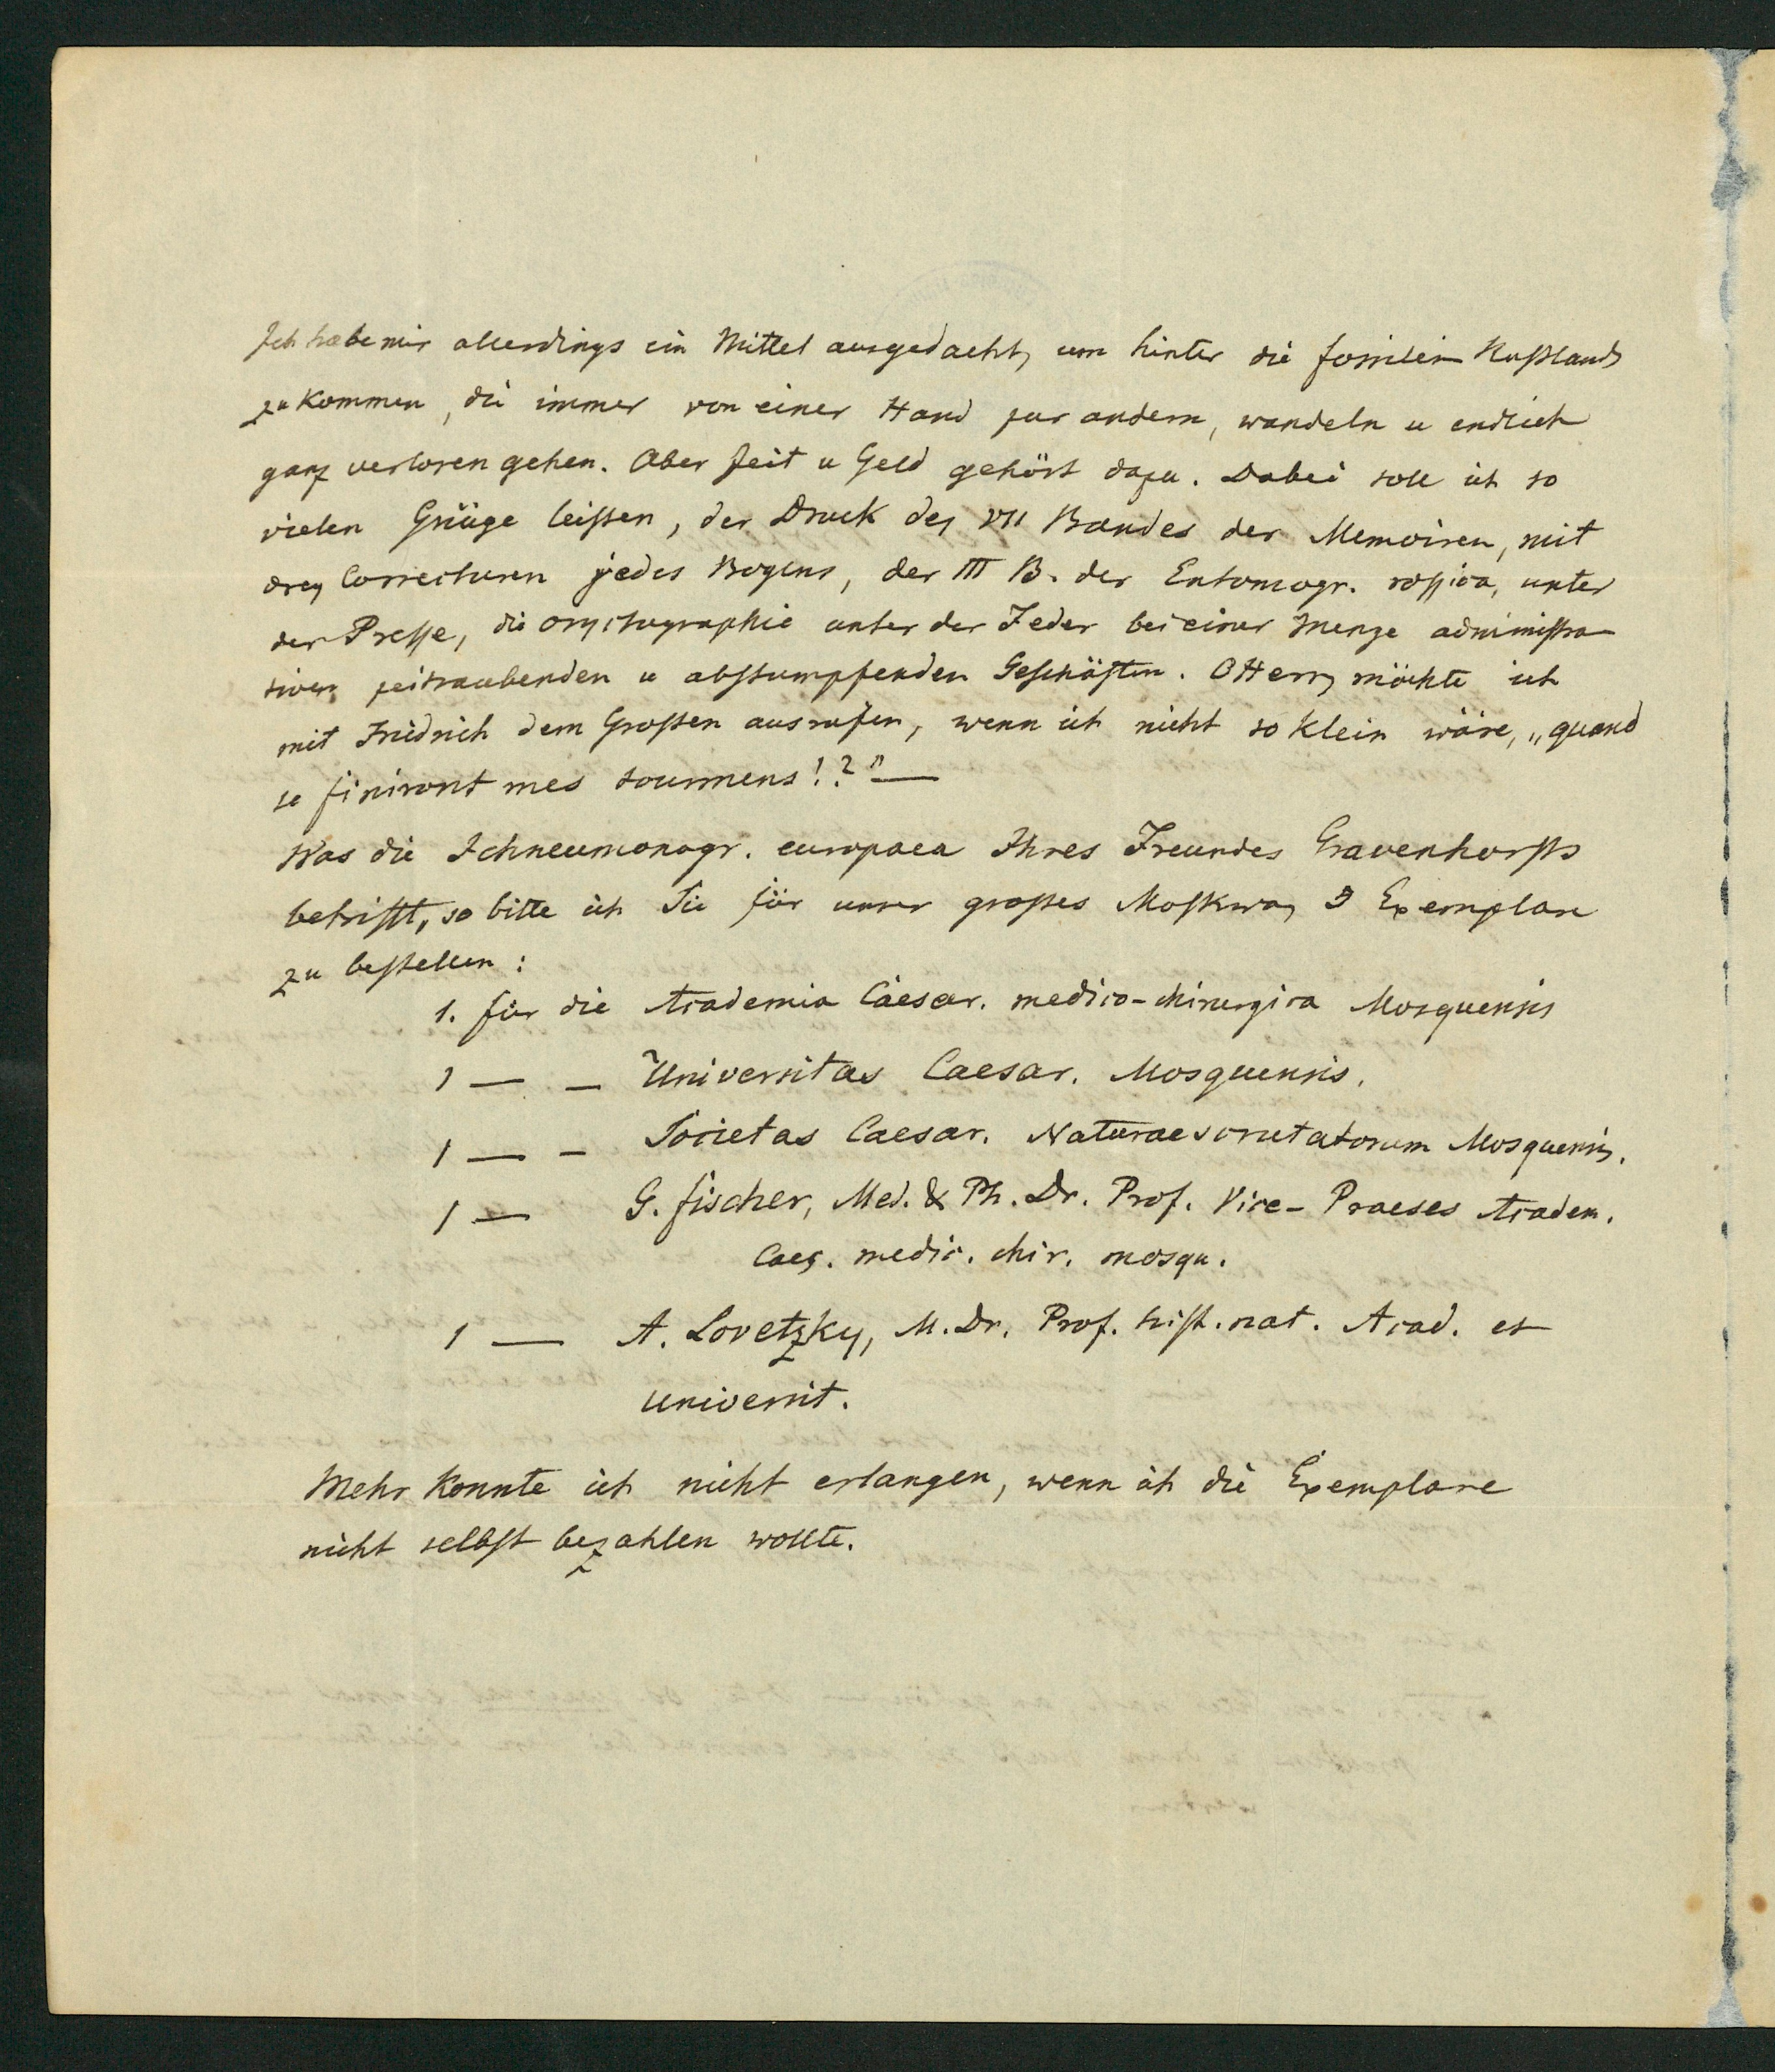 Ich habe mir allerdings ein Mittel ausgedacht, um hinter die fossilien Rußlands
zu kommen, die immer von einer Hand zur andern, wandeln u endlich
ganz verloren gehen. Aber Zeit u Geld gehört dazu. Dabei soll ich so
vielen Gnüge leisten, der Druck des VII Bandes der Memoiren, mit
drey Correcturen jedes Bogens, der III B. der Entomogr. rossica, unter
der Presse, die oryctographie unter der Feder bei einer Menge administra-
tiven zeitraubenden u abstumpfenden Geschäften. O Herr, möchte ich
mit Friedrich dem Großen ausrufen, wenn ich nicht so klein wäre, „quand
se finiront mes tourmens!?" —
Was die Ichneumonogr. europaea Ihres Freundes Gravenhorsts
betrifft, so bitte ich Sie für unser großes Moskwa, 5 Exemplare
zu bestellen:
1. für die Academia Caesar. medico-chirurgica Mosquensis
1 — — Universitas Caesar. Mosquensis.
1 — — Societas Caesar. Naturae scrutatorum Mosquensis.
1 — G. fischer, Med. & Ph. Dr. Prof. Vice-Praeses Academ.
Caes. medic. chir. mosqu.
1 — A. Lovetzky, M. Dr. Prof. hist. nat. Acad. et
universit.
Mehr konnte ich nicht erlangen, wenn ich die Exemplare
nicht selbst bezahlen wollte.